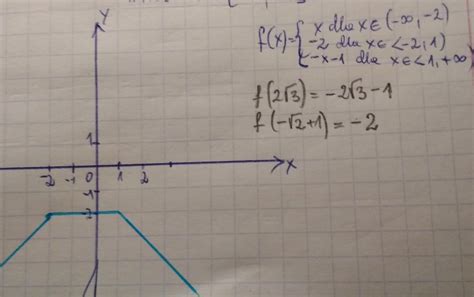 Y
f(x)={ x dla x∈(-∞,-2)
-2 dla x∈<-2,1)
-x-1 dla x∈<1,+∞)
f(2√3)=-2√3-1
f(-√2+1)=-2
1
-2 -1 0 1 2 X
-1
-2